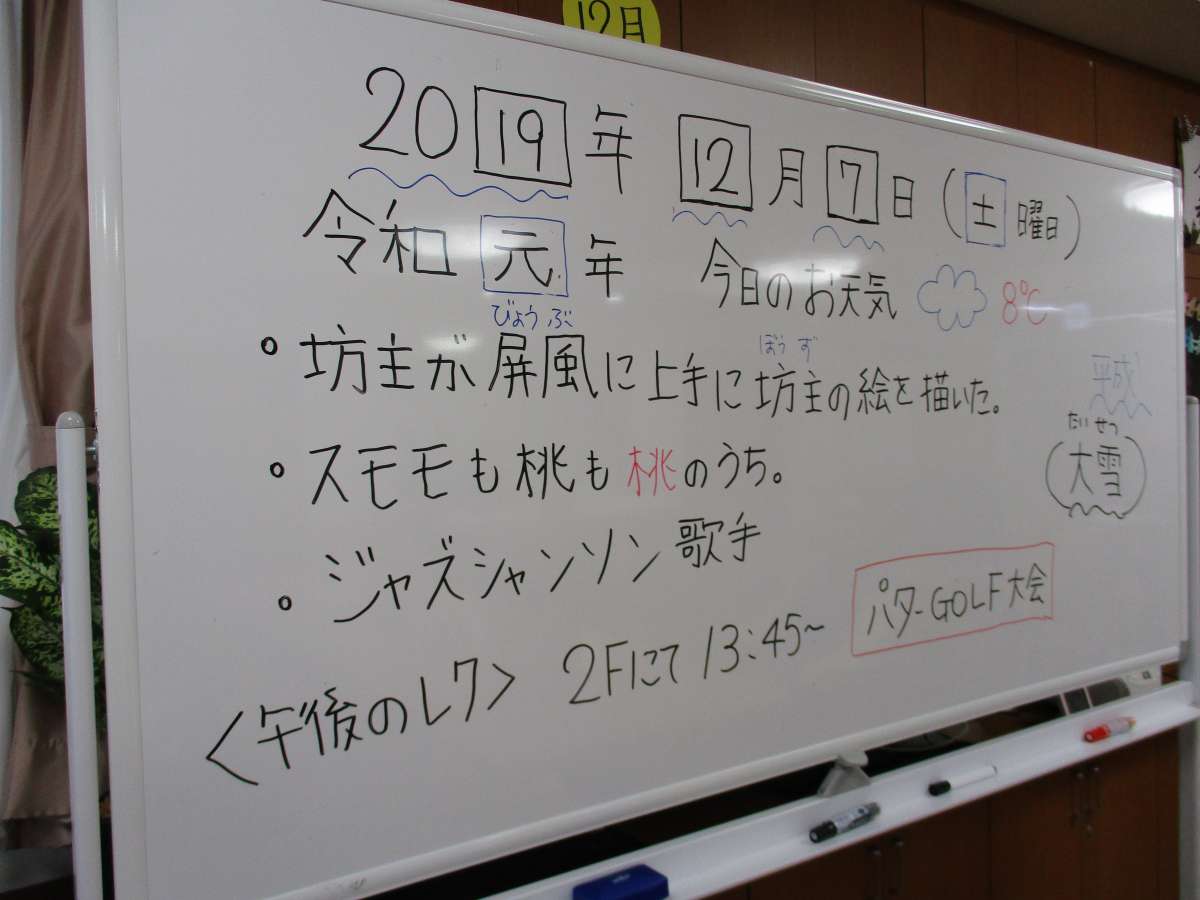 12月
2019年 12月7日(土曜日)
令和元年 今日のお天気 8℃
びょうぶ
ぼうず
坊主が屏風に上手に坊主の絵を描いた。
平成
たいせつ
(大雪)
スモモも桃も桃のうち。
ジャズシャンソン歌手
パターGOLF大会
<午後のレク> 2Fにて 13:45~